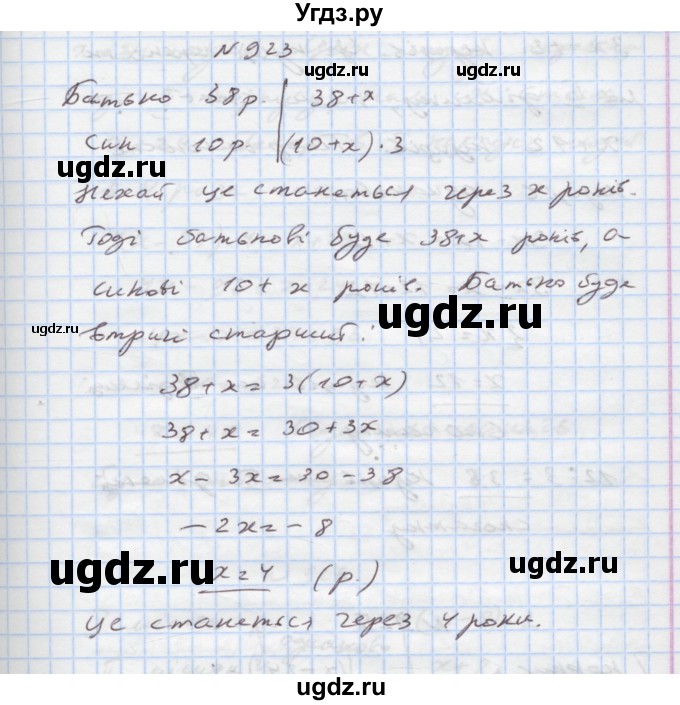 Угдз.ру
N 923
ugdz.ru ugdz.ru
Батько 38р. | 38+x
Син 10р. | (10+x)·3
ugdz.ru ugdz.ru
Нехай це станеться через x років.
Тоді батькові буде 38+x років, а
синові 10+x років. Батько буде
ugdz.ru ugdz.ru
втричі старший:
38+x=3(10+x)
38+x=30+3x
x-3x=30-38
-2x=-8
ugdz.ru ugdz.ru
x=4 (р.)
Це станеться через 4 роки.
ugdz.ru
ugdz.ru